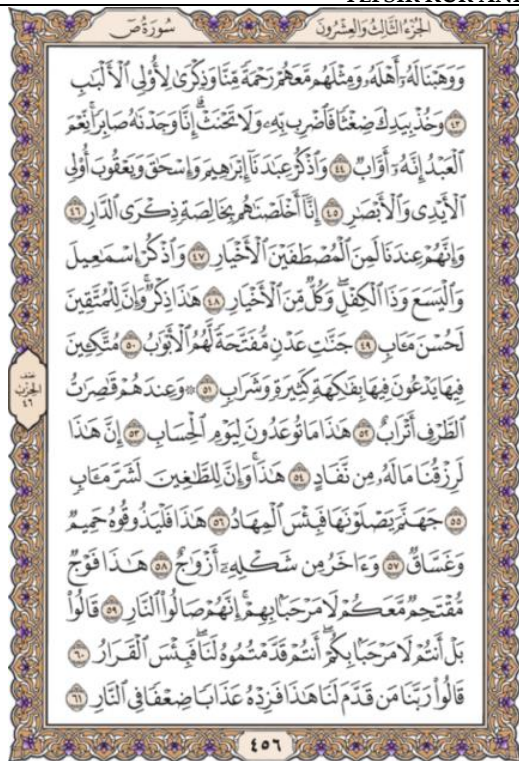 الجزء الثالث والعشرون
سورة ص
وَوَهَبْنَا لَهُۥٓ أَهْلَهُۥ وَمِثْلَهُم مَّعَهُمْ رَحْمَةً مِّنَّا وَذِكْرَىٰ لِأُو۟لِى ٱلْأَلْبَٰبِ
٤٣ وَخُذْ بِيَدِكَ ضِغْثًا فَٱضْرِب بِّهِۦ وَلَا تَحْنَثْ ۗ إِنَّا وَجَدْنَٰهُ صَابِرًا ۚ نِّعْمَ
ٱلْعَبْدُ ۖ إِنَّهُۥٓ أَوَّابٌ ٤٤ وَٱذْكُرْ عِبَٰدَنَآ إِبْرَٰهِيمَ وَإِسْحَٰقَ وَيَعْقُوبَ أُو۟لِى
ٱلْأَيْدِى وَٱلْأَبْصَٰرِ ٤٥ إِنَّآ أَخْلَصْنَٰهُم بِخَالِصَةٍ ذِكْرَى ٱلدَّارِ ٤٦
وَإِنَّهُمْ عِندَنَا لَمِنَ ٱلْمُصْطَفَيْنَ ٱلْأَخْيَارِ ٤٧ وَٱذْكُرْ إِسْمَٰعِيلَ
وَٱلْيَسَعَ وَذَا ٱلْكِفْلِ ۖ وَكُلٌّ مِّنَ ٱلْأَخْيَارِ ٤٨ هَٰذَا ذِكْرٌ ۚ وَإِنَّ لِلْمُتَّقِينَ
لَحُسْنَ مَـَٔابٍ ٤٩ جَنَّٰتِ عَدْنٍ مُّفَتَّحَةً لَّهُمُ ٱلْأَبْوَٰبُ ٥٠ مُتَّكِـِٔينَ
فِيهَا يَدْعُونَ فِيهَا بِفَٰكِهَةٍ كَثِيرَةٍ وَشَرَابٍ ٥١ ۞ وَعِندَهُمْ قَٰصِرَٰتُ
ٱلطَّرْفِ أَتْرَابٌ ٥٢ هَٰذَا مَا تُوعَدُونَ لِيَوْمِ ٱلْحِسَابِ ٥٣ إِنَّ هَٰذَا
لَرِزْقُنَا مَا لَهُۥ مِن نَّفَادٍ ٥٤ هَٰذَا ۚ وَإِنَّ لِلطَّٰغِينَ لَشَرَّ مَـَٔابٍ
٥٥ جَهَنَّمَ يَصْلَوْنَهَا فَبِئْسَ ٱلْمِهَادُ ٥٦ هَٰذَا فَلْيَذُوقُوهُ حَمِيمٌ
وَغَسَّاقٌ ٥٧ وَءَاخَرُ مِن شَكْلِهِۦٓ أَزْوَٰجٌ ٥٨ هَٰذَا فَوْجٌ
مُّقْتَحِمٌ مَّعَكُمْ ۖ لَا مَرْحَبًۢا بِهِمْ ۚ إِنَّهُمْ صَالُوا۟ ٱلنَّارِ ٥٩ قَالُوا۟
بَلْ أَنتُمْ لَا مَرْحَبًۢا بِكُمْ ۖ أَنتُمْ قَدَّمْتُمُوهُ لَنَا ۖ فَبِئْسَ ٱلْقَرَارُ ٦٠
قَالُوا۟ رَبَّنَا مَن قَدَّمَ لَنَا هَٰذَا فَزِدْهُ عَذَابًا ضِعْفًا فِى ٱلنَّارِ ٦١
نصف
الحزب
٤٦
٤٥٦